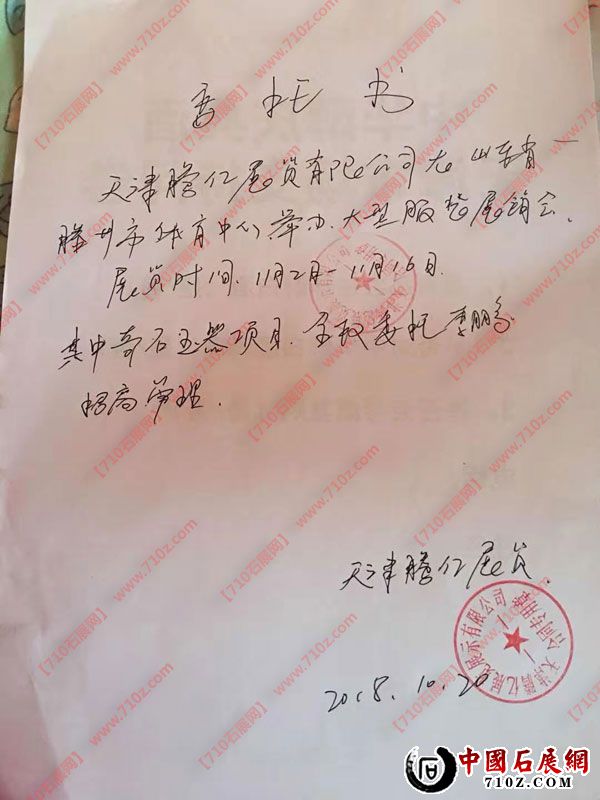 委托书
天津腾亿展览有限公司在山东省
滕州市体育中心举办大型服装展销会.
展览时间.11月2月-11月16日.
其中奇石玉器项目.全权委托李鹏
招商管理.
天津腾亿展览.
天津腾亿展览展示有限公司
合同专用章
2018.10.20
【710石展网】
www.710z.com
中國石展網
710Z.COM